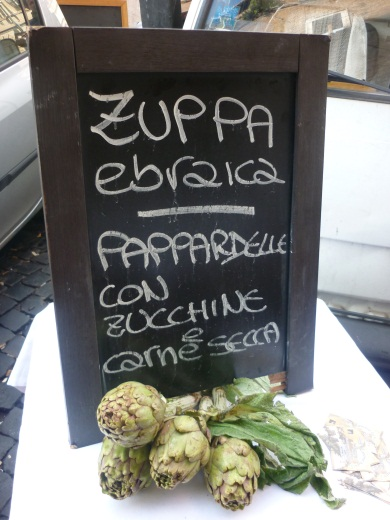 ZUPPA
ebraica
PAPPARDELLE
CON
ZUCCHINE
e
carne SECCA